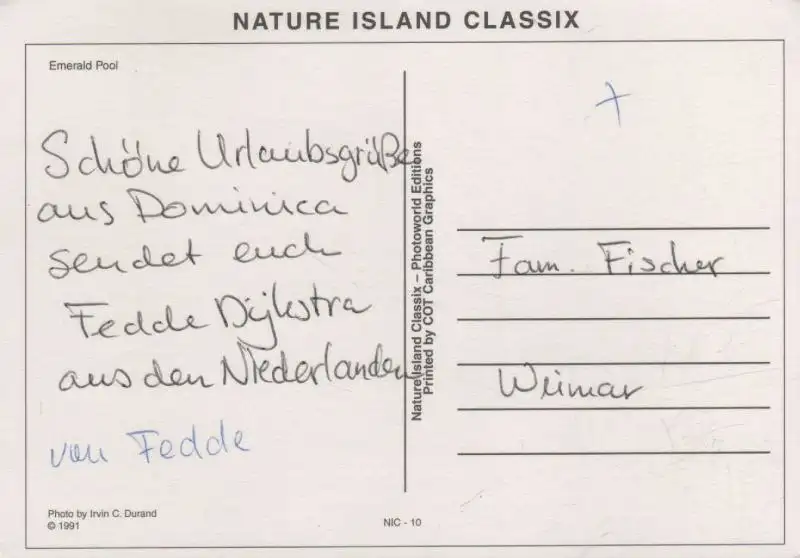 NATURE ISLAND CLASSIX
Emerald Pool
Schöne Urlaubsgrüße
aus Dominica
sendet euch
Fedde Dijkstra
aus den Niederlanden
von Fedde
Photo by Irvin C. Durand
© 1991
NIC - 10
Nature Island Classix – Photoworld Editions
Printed by COT Caribbean Graphics
Fam. Fischer
Weimar